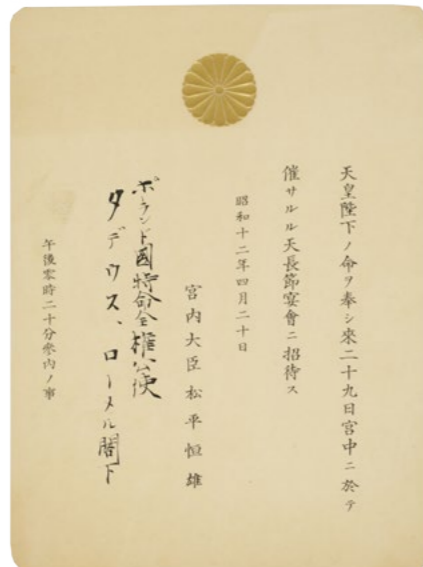 天皇陛下ノ命ヲ奉シ來二十九日宮中ニ於テ
催サルル天長節宴會ニ招待ス
昭和十二年四月二十日
宮内大臣松平恒雄
ポーランド國特命全權公使
タデウス、ローメル閣下
午後零時二十分參內ノ事